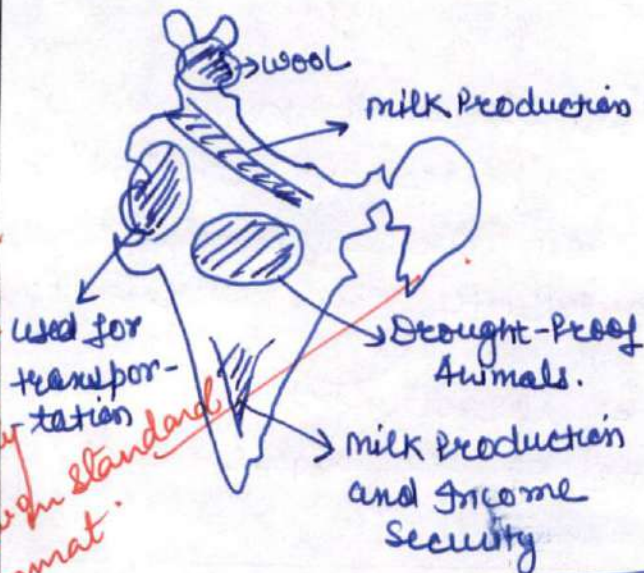 wool
milk Production
used for
transpor-
-tation
Drought-Proof
Animals.
milk Production
and Income
Security
standard